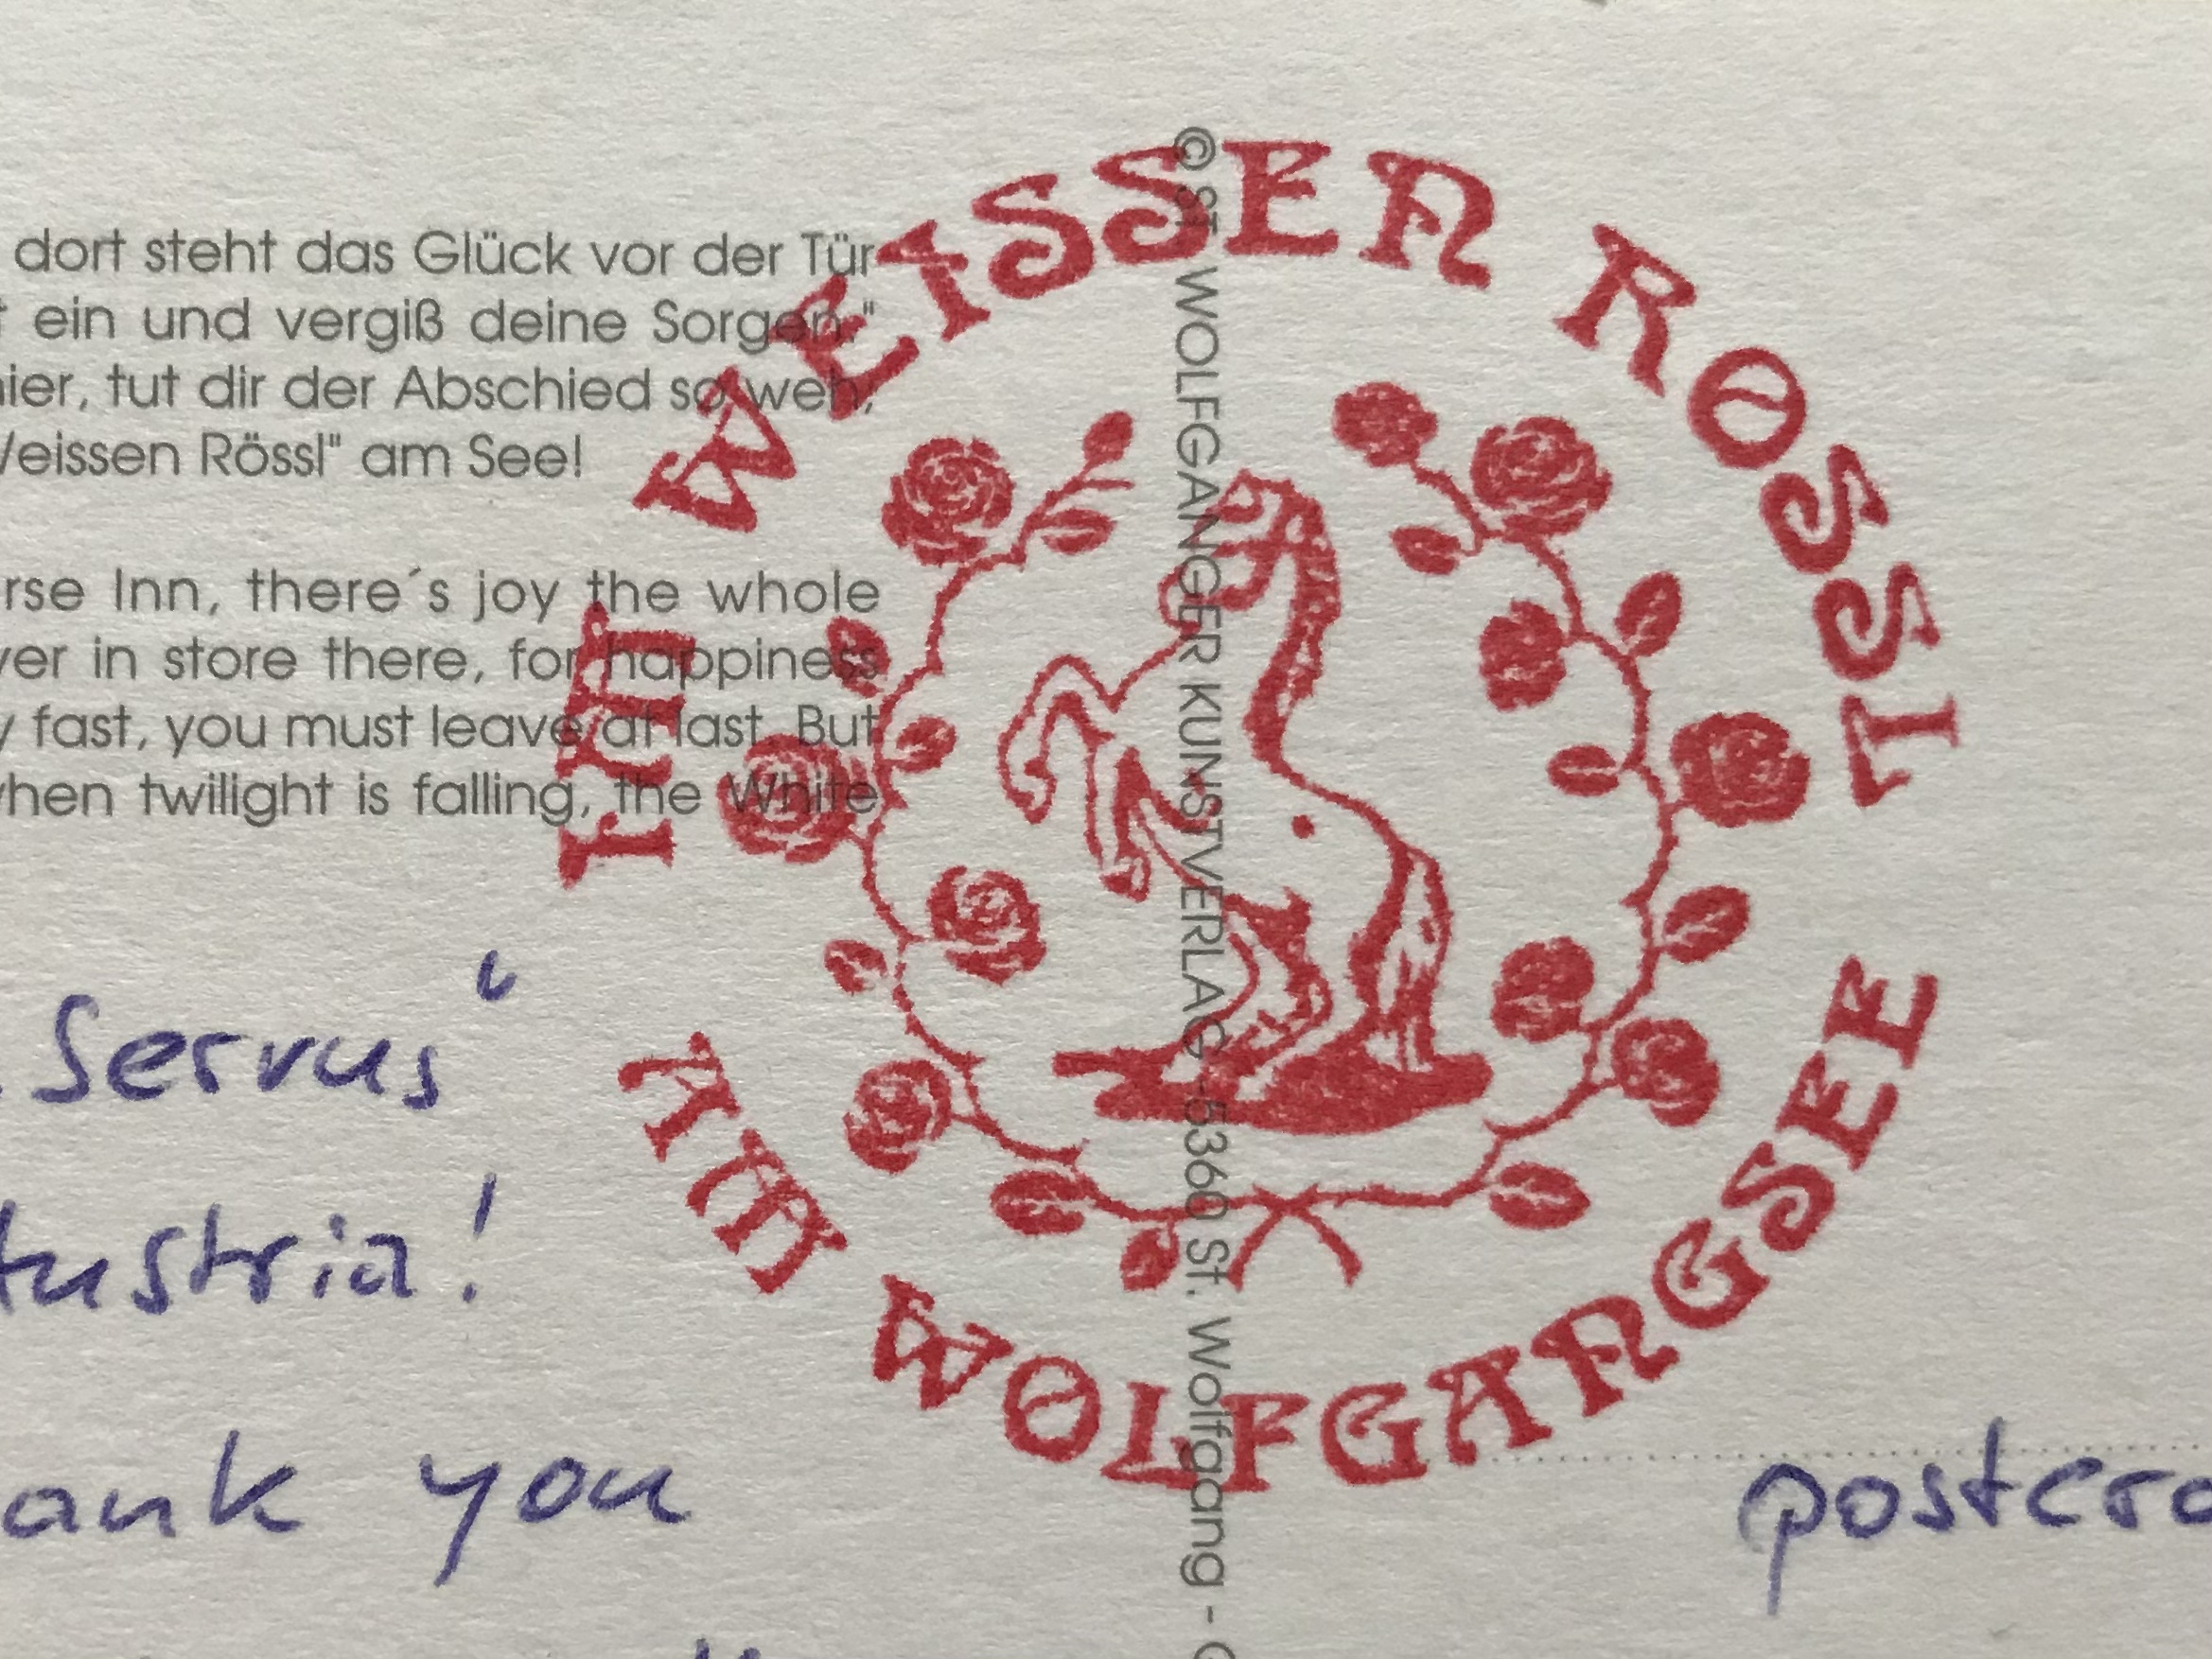 dort steht das Glück vor der Tür
ein und vergiß deine Sorgen."
hier, tut dir der Abschied so weh,
Weissen Rössl" am See!
rse Inn, there´s joy the whole
ver in store there, for happiness
y fast, you must leave at last. But
when twilight is falling, the White
IM WEISSEN RÖSSL
AM WOLFGANGSEE
© ST. WOLFGANGER KUNSTVERLAG - 5360 St. Wolfgang -
Servus"
Austria!
ank you
postcro